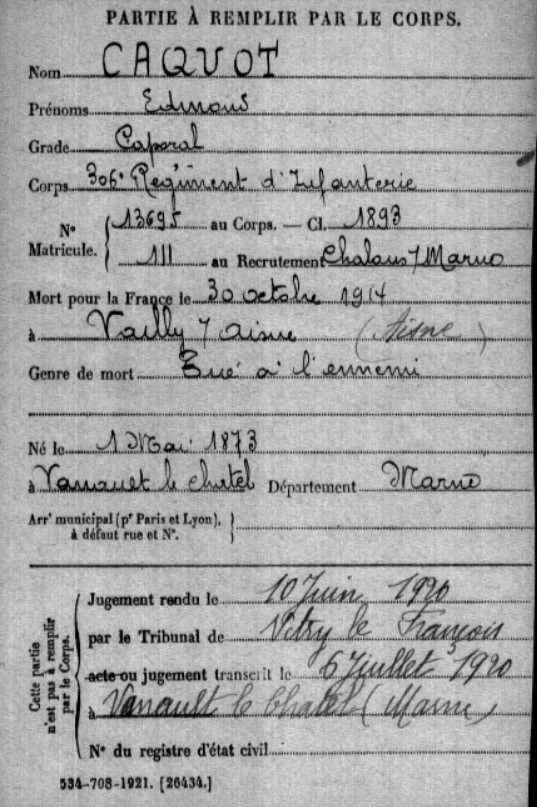 PARTIE À REMPLIR PAR LE CORPS.
Nom CAQUOT
Prénoms Edmond
Grade Caporal
Corps 306e Régiment d'Infanterie
N° Matricule. 13695 au Corps. — Cl. 1893
111 au Recrutement Chalons s/ Marne
Mort pour la France le 30 octobre 1914
à Vailly s/ aisne (Aisne)
Genre de mort Tué à l'ennemi
Né le 1 Mai 1873
à Vanault le chatel Département Marne
Arrt municipal (pr Paris et Lyon),
à défaut rue et N°.
Cette partie
n'est pas à remplir
par le Corps.
Jugement rendu le 10 Juin 1920
par le Tribunal de Vitry le François
acte ou jugement transcrit le 6 Juillet 1920
à Vanault le Chatel (Marne)
N° du registre d'état civil
534-708-1921. [26434.]